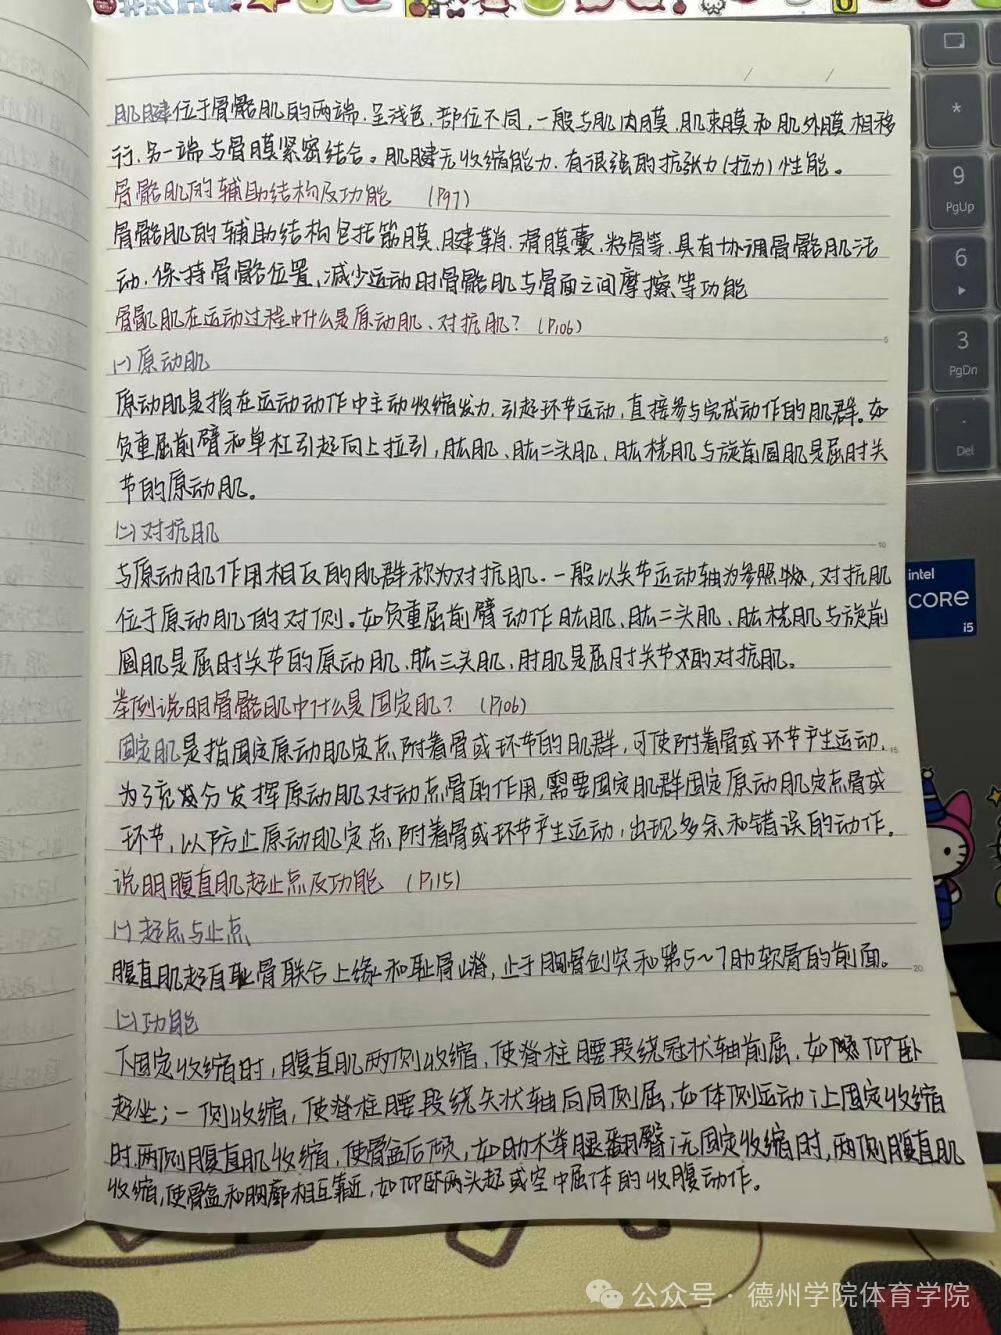 肌腱位于骨骼肌的两端,呈浅色,部位不同,一般与肌内膜、肌束膜和肌外膜相移
行,另一端与骨膜紧密结合。肌腱无收缩能力,有很强的抗张力(拉力)性能。
骨骼肌的辅助结构及功能 (P97)
骨骼肌的辅助结构包括筋膜、腱鞘、滑膜囊、籽骨等,具有协调骨骼肌活
动,保持骨骼位置,减少运动时骨骼肌与骨面之间摩擦等功能
骨骼肌在运动过程中什么是原动肌、对抗肌?(P106)
(一)原动肌
原动肌是指在运动动作中主动收缩发力,引起环节运动,直接参与完成动作的肌群。如
负重屈前臂和单杠引起向上拉引,肱肌、肱二头肌、肱桡肌与旋前圆肌是屈肘关
节的原动肌。
(二)对抗肌
与原动肌作用相反的肌群称为对抗肌。一般以关节运动轴为参照物,对抗肌
位于原动肌的对侧。如负重屈前臂动作肱肌、肱二头肌、肱桡肌与旋前
圆肌是屈肘关节的原动肌,肱三头肌,肘肌是屈肘关节的对抗肌。
举例说明骨骼肌中什么是固定肌?(P106)
固定肌是指固定原动肌定点附着骨或环节的肌群,可使附着骨或环节产生运动,
为了充分发挥原动肌对动点骨的作用,需要固定肌群固定原动肌定点骨或
环节,以防止原动肌定点附着骨或环节产生运动,出现多余和错误的动作。
说明腹直肌起止点及功能 (P115)
(一)起点与止点
腹直肌起自耻骨联合上缘和耻骨嵴,止于胸骨剑突和第5~7肋软骨的前面。
(二)功能
下固定收缩时,腹直肌两侧收缩,使脊柱腰段绕冠状轴前屈,如仰卧
起坐;一侧收缩,使脊柱腰段绕矢状轴向同侧屈,如体侧运动;上固定收缩
时,两侧腹直肌收缩,使骨盆后倾,如肋木举腿翻臀;无固定收缩时,两侧腹直肌
收缩,使骨盆和胸廓相互靠近,如仰卧两头起或空中屈体的收腹动作。
5
10
15
20
*
9
PgUp
6
3
PgDn
.
Del
intel
CORE
i5
公众号·德州学院体育学院